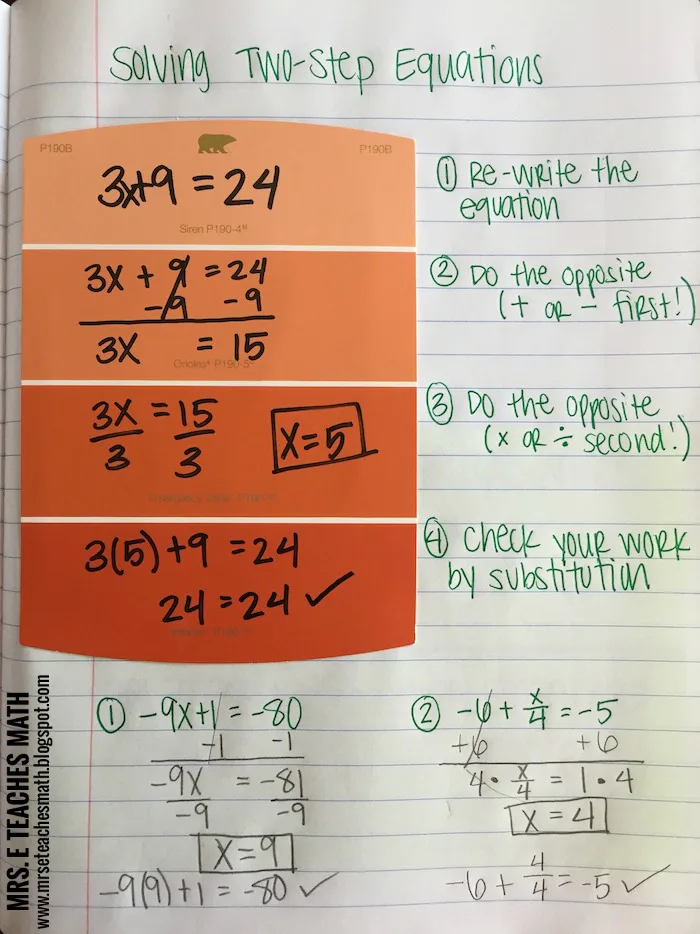 Solving Two-Step Equations
P190B P190B
3x+9 = 24
Siren P190-4
① Re-write the
equation
3x + 9 = 24
-9 -9
3x = 15
Orioles P190-5
② Do the opposite
(+ or - first!)
3x = 15
3 3
x=5
③ Do the opposite
(x or ÷ second!)
3(5)+9 = 24
24 = 24 ✓
④ Check your work
by substitution
① -9x+1 = -80
-1 -1
-9x = -81
-9 -9
x=9
-9(9)+1 = -80 ✓
② -6 + x/4 = -5
+6 +6
4 • x/4 = 1 • 4
x = 4
-6 + 4/4 = -5 ✓
MRS. E TEACHES MATH
www.mrseteachesmath.blogspot.com